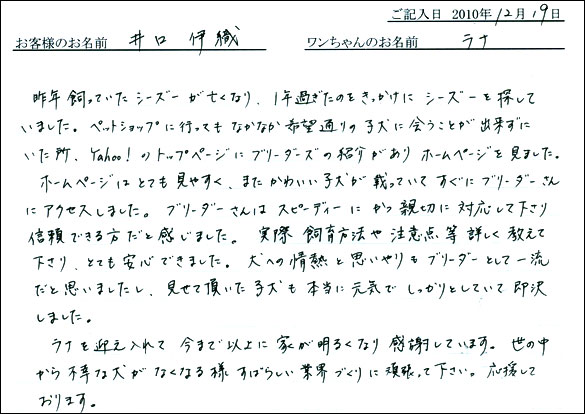 ご記入日 2010年12月19日
お客様のお名前 井口 伊織 ワンちゃんのお名前 ラナ
昨年飼っていたシーズーが亡くなり、1年過ぎたのをきっかけにシーズーを探して
いました。ペットショップに行ってもなかなか希望通りの子犬に会うことが出来ずに
いた所、Yahoo!のトップページにブリーダーズの紹介がありホームページを見ました。
ホームページはとても見やすく、またかわいい子犬が載っていてすぐにブリーダーさん
にアクセスしました。ブリーダーさんはスピーディーにかつ親切に対応して下さり
信頼できる方だと感じました。実際飼育方法や注意点等詳しく教えて
下さり、とても安心できました。犬への情熱と思いやりもブリーダーとして一流
だと思いましたし、見せて頂いた子犬も本当に元気でしっかりとしていて即決
しました。
ラナを迎え入れて今まで以上に家が明るくなり感謝しています。世の中
から不幸な犬がなくなる様すばらしい業界づくりに頑張って下さい。応援して
おります。